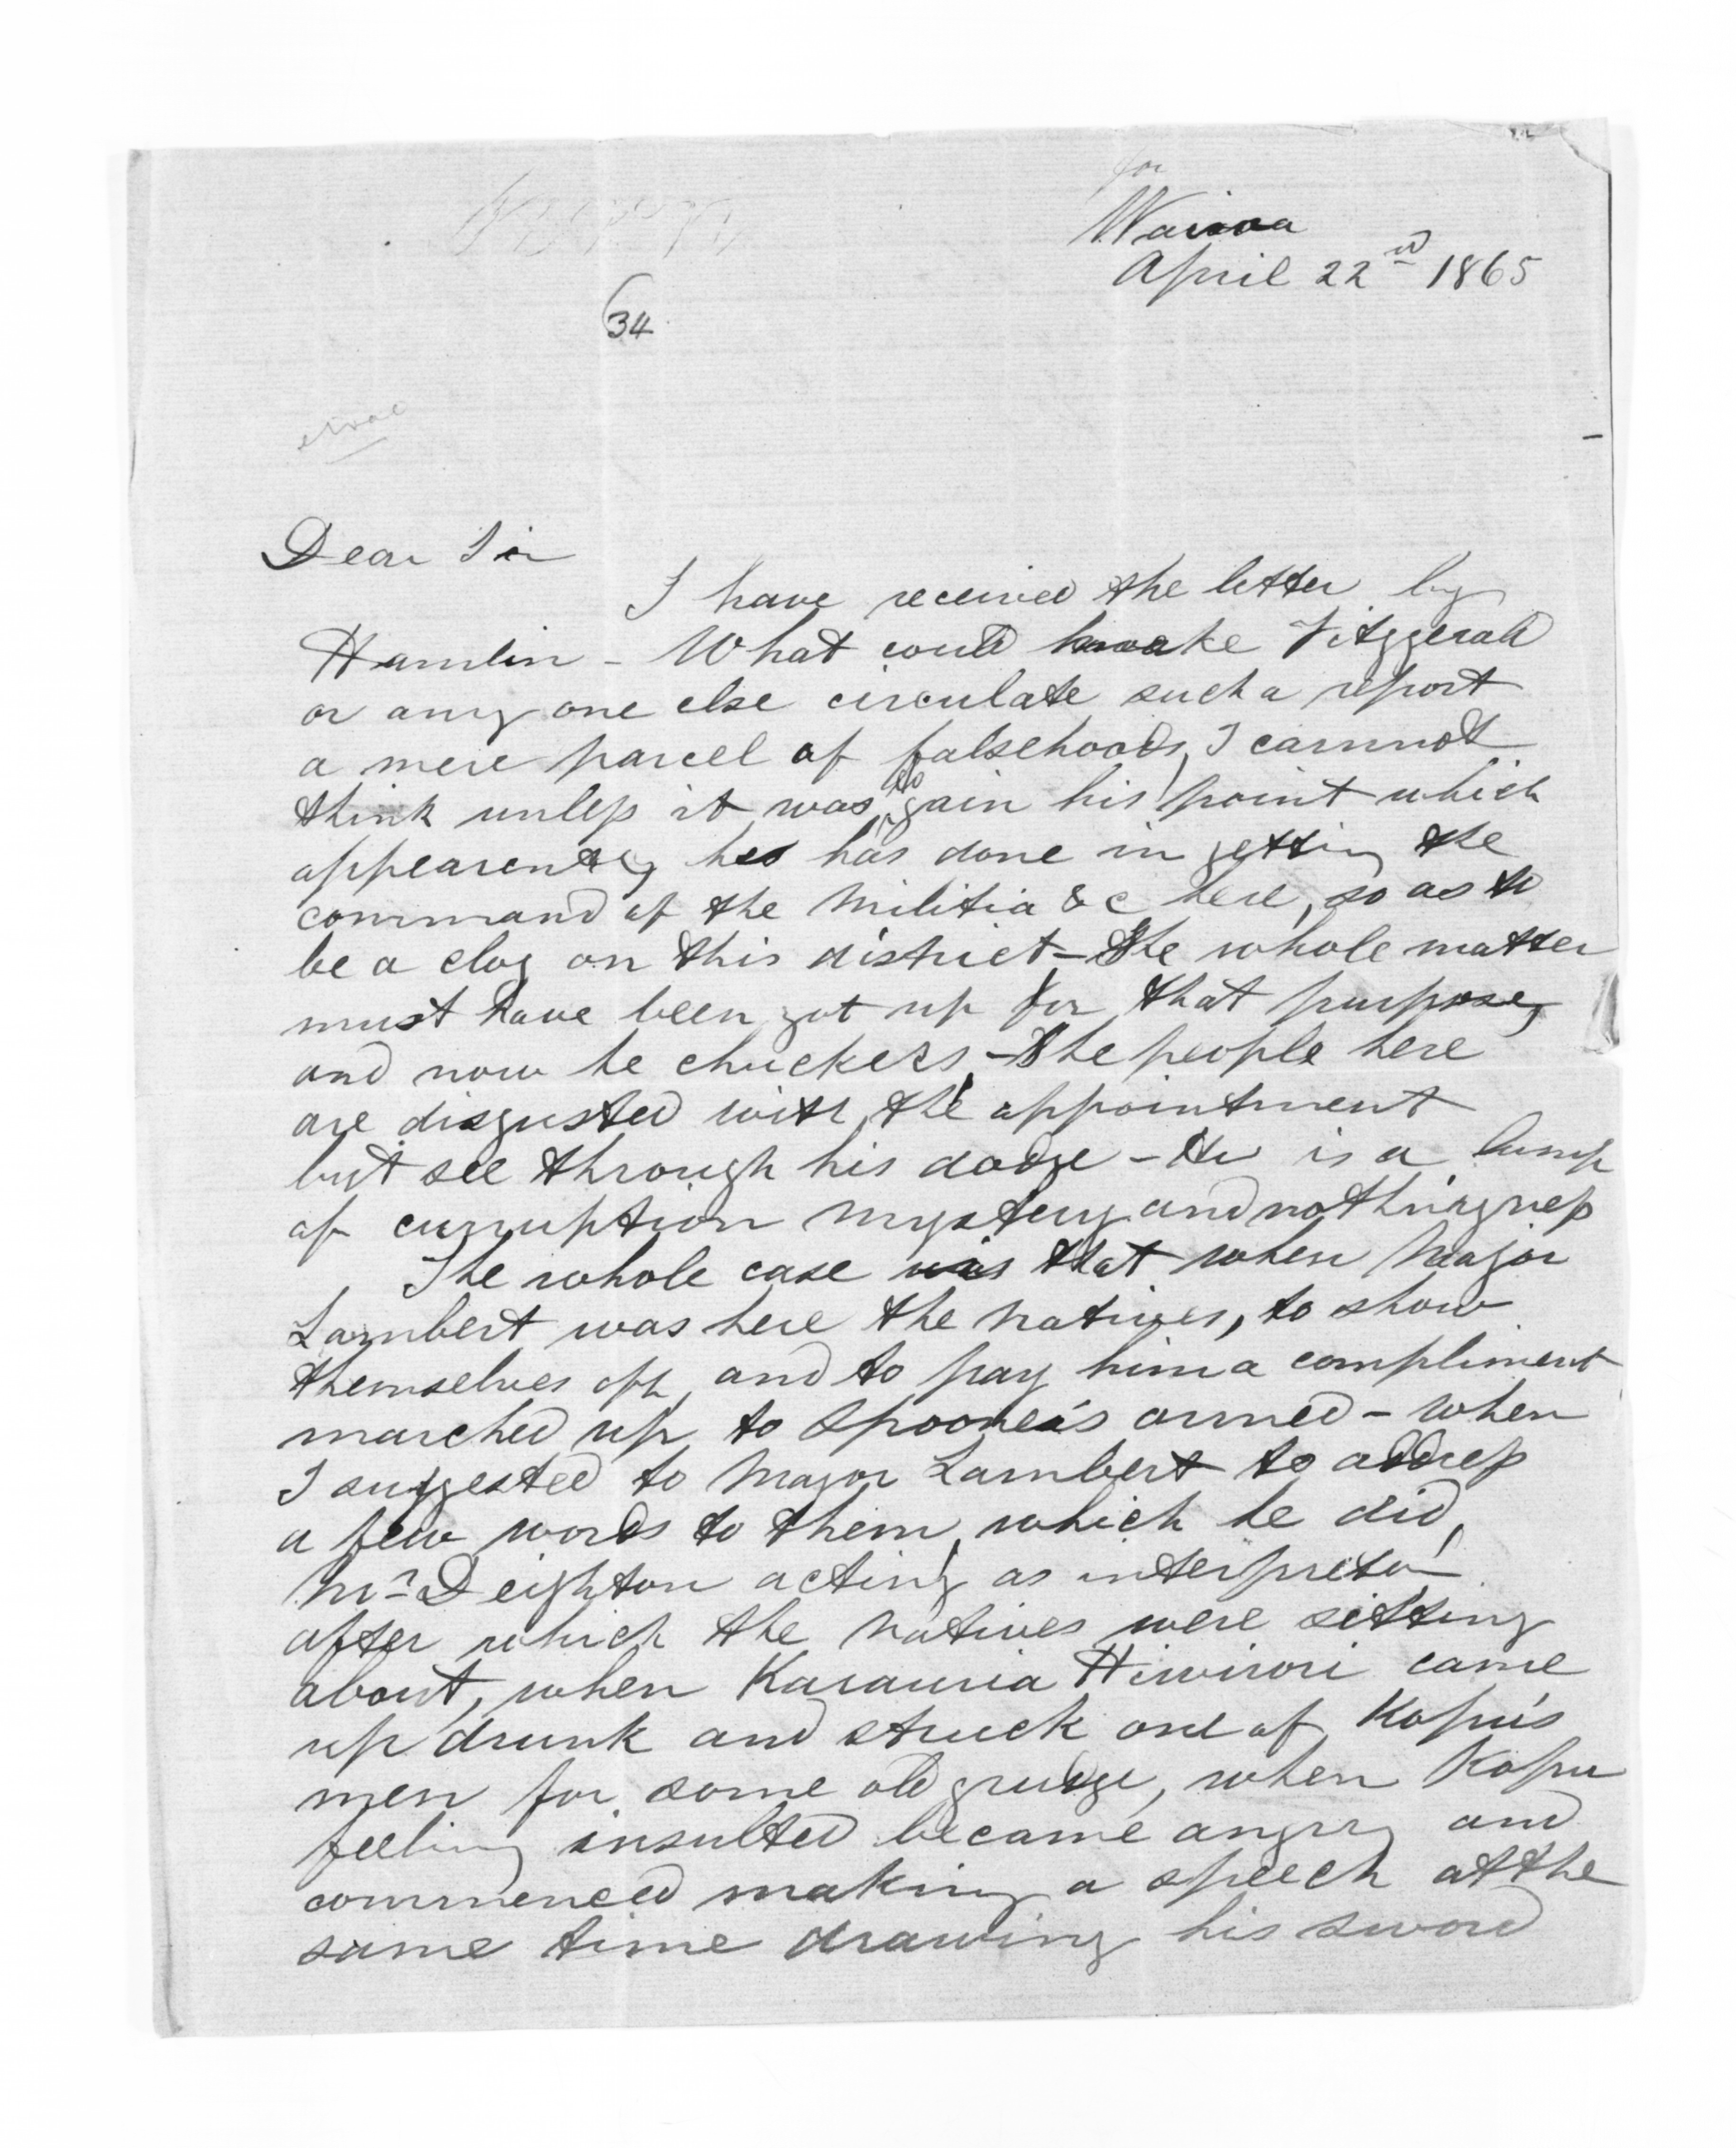 Wairoa
April 22nd 1865
34
Dear Sir
I have received the letter by
Hamlin - What could make Fitzgerald
or any one else circulate such a report
a mere parcel of falsehoods, I cannot
think unless it was to gain his point which
appearently he has done in getting the
command of the Militia &c here, so as to
be a clog on this district - The whole matter
must have been got up for that purpose,
and now he chuckers - The people here
are disgusted with the appointment
but see through his dodge - He is a lump
of curruption mystery and nothingness
The whole case is that when Major
Lambert was here the natives, to show
themselves off, and to pay him a compliment
marched up to Spooner's armed - when
I suggested to Major Lambert to address
a few words to them, which he did,
Mr Deighton acting as interpreter
after which the natives were sitting
about, when Karauria Hiwirori came
up drunk and struck one of Kopu's
men for some old grudge, when Kopu
feeling insulted became angry and
commenced making a speech at the
same time drawing his sword